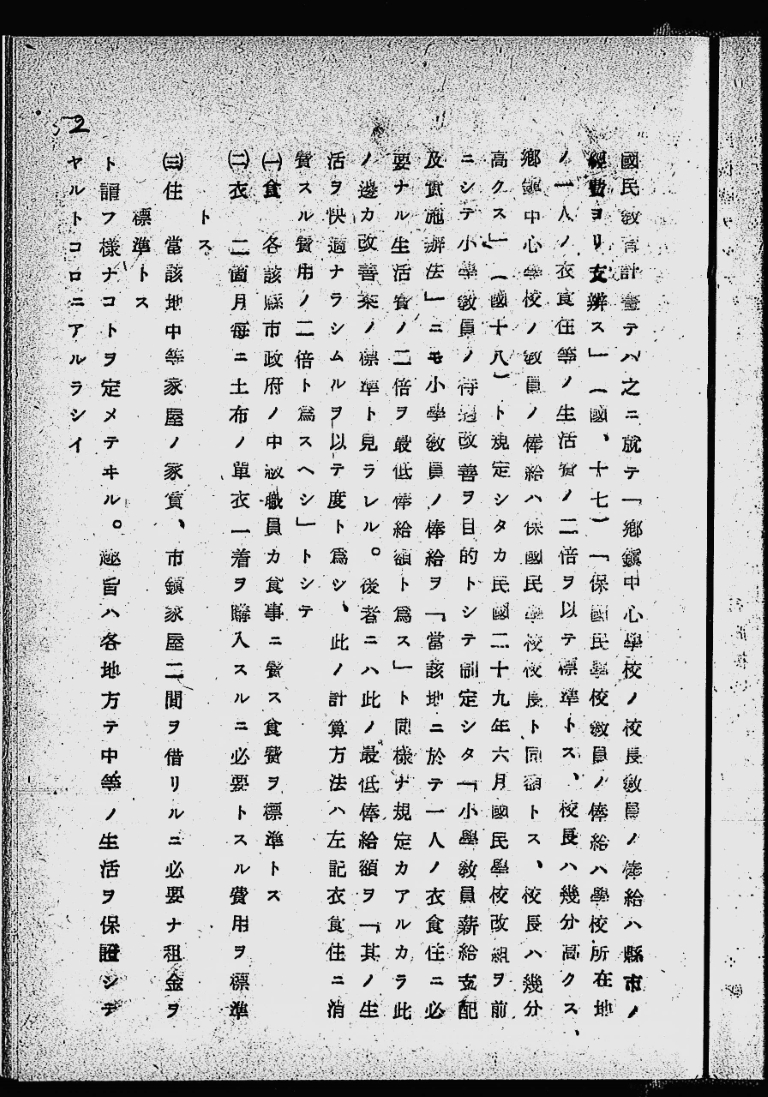 52
國民敎育計畫テハ之ニ就テ「鄕鎭中心學校ノ校長敎員ノ俸給ハ縣市ノ
經費ヨリ支辨ス」（國、十七）「保國民學校敎員ノ俸給ハ學校所在地
ノ一人ノ衣食住等ノ生活費ノ二倍ヲ以テ標準トス、校長ハ幾分高クス、
鄕鎭中心學校ノ敎員ノ俸給ハ保國民學校校長ト同額トス、校長ハ幾分
高クス」（國十八）ト規定シタカ民國二十九年六月國民學校改組ヲ前
ニシテ小學敎員ノ待遇改善ヲ目的トシテ制定シタ「小學敎員薪給支配
及實施辦法」ニモ小學敎員ノ俸給ヲ「當該地ニ於テ一人ノ衣食住ニ必
要ナル生活費ノ二倍ヲ最低俸給額ト爲ス」ト同樣ナ規定カアルカラ此
ノ邊カ改善案ノ標準ト見ラレル。後者ニハ此ノ最低俸給額ヲ「其ノ生
活ヲ快適ナラシムルヲ以テ度ト爲シ、此ノ計算方法ハ左記衣食住ニ消
費スル費用ノ二倍ト爲スヘシ」トシテ
㈠食　各該縣市政府ノ中級職員カ食事ニ費ス食費ヲ標準トス
㈡衣　二箇月每ニ土布ノ單衣一着ヲ購入スルニ必要トスル費用ヲ標準
トス
㈢住　當該地中等家屋ノ家賃、市鎭家屋二間ヲ借リルニ必要ナ租金ヲ
標準トス
ト謂フ樣ナコトヲ定メテヰル。趣旨ハ各地方テ中等ノ生活ヲ保證シテ
ヤルトコロニアルラシイ